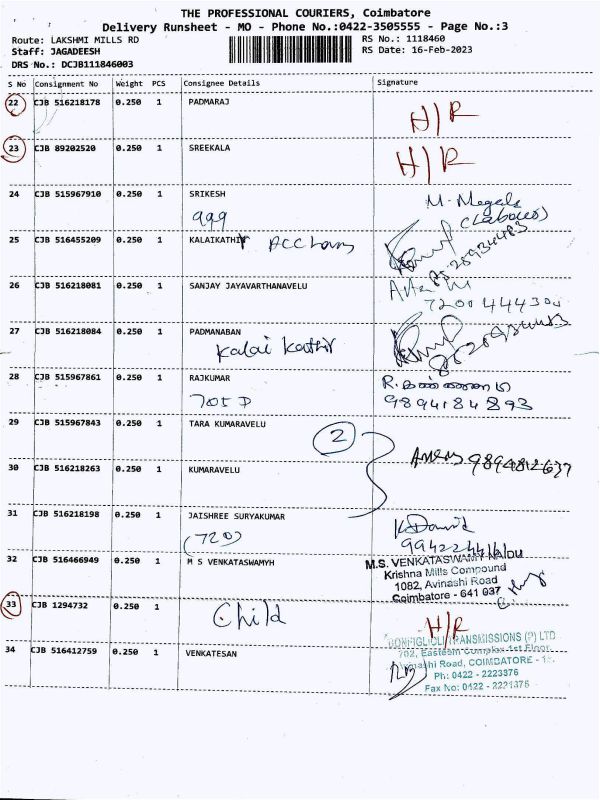 THE PROFESSIONAL COURIERS, Coimbatore
Delivery Runsheet - MO - Phone No.:0422-3505555 - Page No.:3
Route: LAKSHMI MILLS RD RS No.: 1118460
Staff: JAGADEESH RS Date: 16-Feb-2023
DRS No.: DCJB111846003
S No Consignment No Weight PCS Consignee Details Signature
22 CJB 516218178 0.250 1 PADMARAJ
H/R
23 CJB 89202520 0.250 1 SREEKALA
H/R
24 CJB 515967910 0.250 1 SRIKESH
999
(Labour)
25 CJB 516455209 0.250 1 KALAIKATHIR
26 CJB 516218081 0.250 1 SANJAY JAYAVARTHANAVELU
7200444304
27 CJB 516218084 0.250 1 PADMANABAN
Kalai Kathir
28 CJB 515967861 0.250 1 RAJKUMAR
705 D
9894184893
29 CJB 515967843 0.250 1 TARA KUMARAVELU
2
9894812637
30 CJB 516218263 0.250 1 KUMARAVELU
31 CJB 516218198 0.250 1 JAISHREE SURYAKUMAR
K. David
32 CJB 516466949 0.250 1 M S VENKATASWAMYH
M.S. VENKATASWAMY NAIDU
Krishna Mills Compound
1082, Avinashi Road
Coimbatore - 641 037
33 CJB 1294732 0.250 1
Child
H/R
34 CJB 516412759 0.250 1 VENKATESAN
BONFIGLIOLI TRANSMISSIONS (P) LTD
702, Eastern Complex 1st Floor
Avinashi Road, COIMBATORE -
Ph: 0422 - 2223376
Fax No: 0422 - 2221376